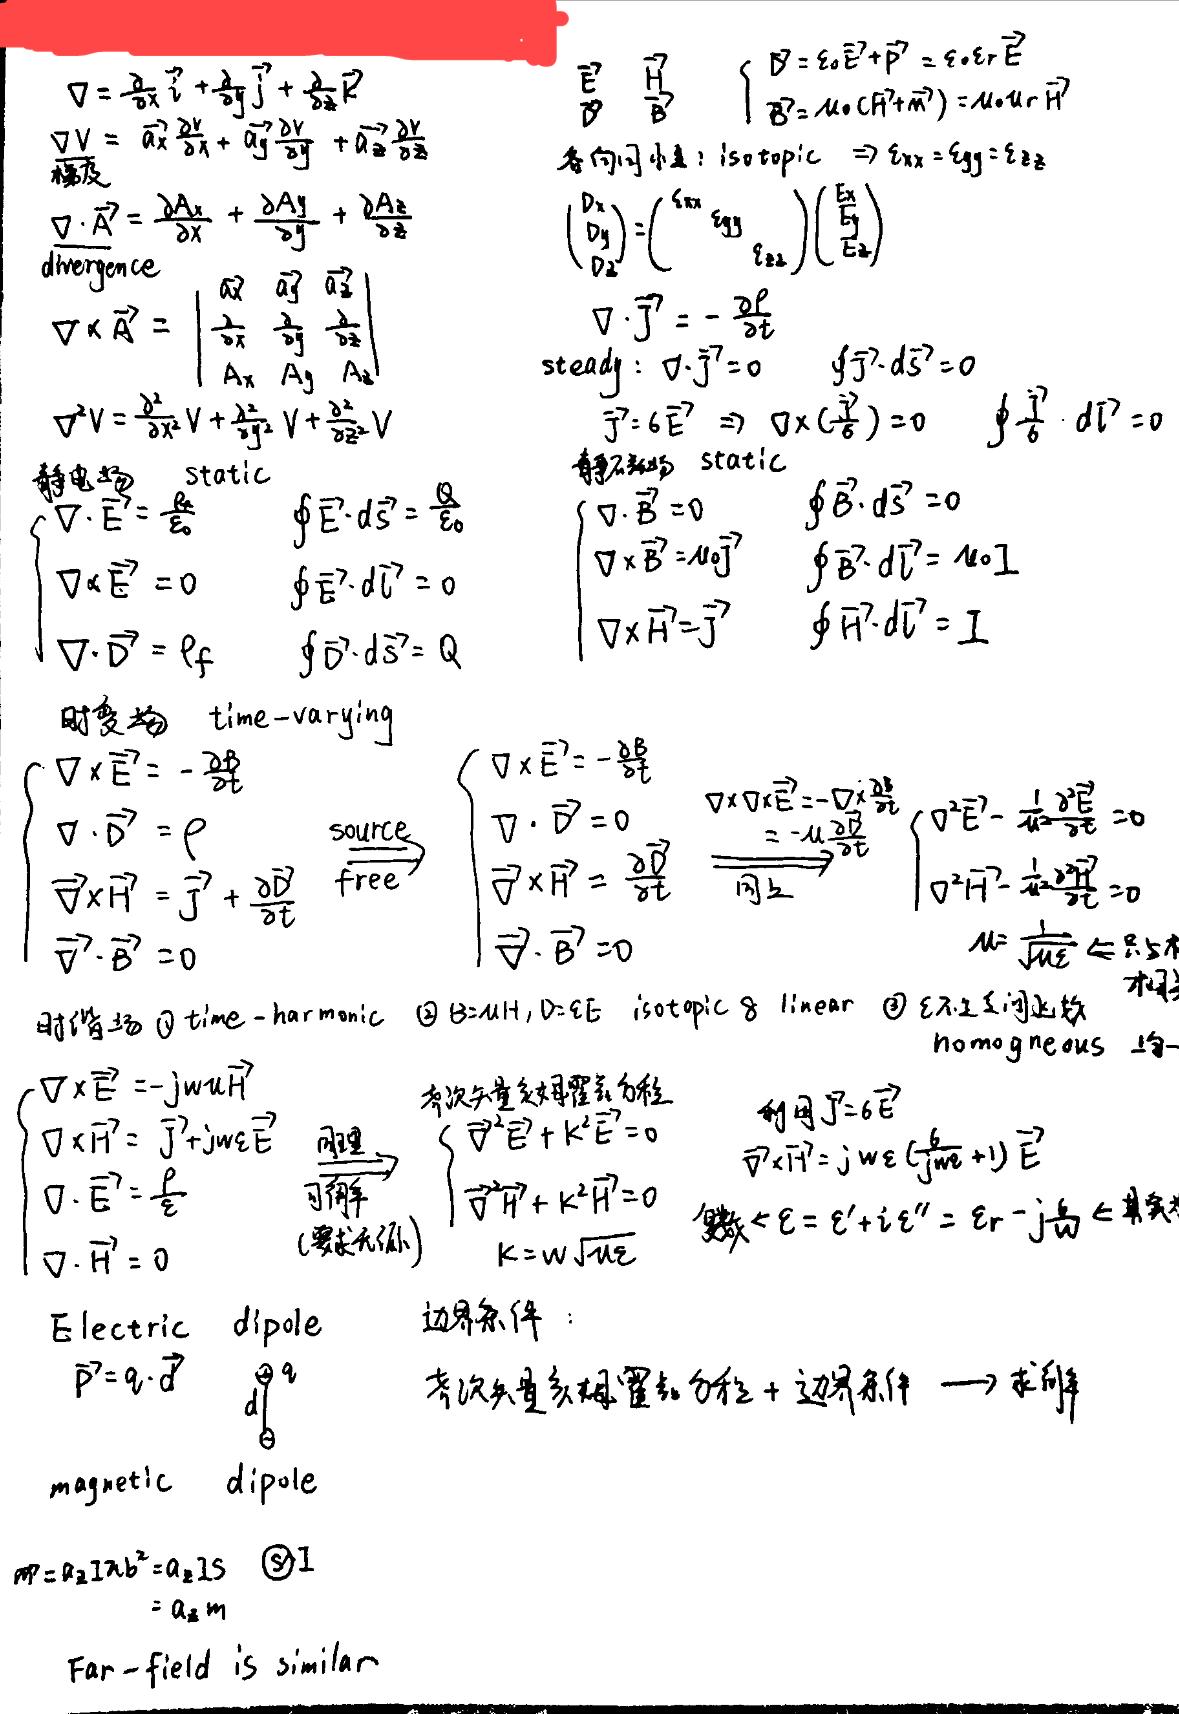 ∇ = ∂/∂x i⃗ + ∂/∂y j⃗ + ∂/∂z k⃗
∇V = a⃗x ∂V/∂x + a⃗y ∂V/∂y + a⃗z ∂V/∂z
梯度
∇·A⃗ = ∂Ax/∂x + ∂Ay/∂y + ∂Az/∂z
divergence
∇×A⃗ = | a⃗x a⃗y a⃗z |
| ∂/∂x ∂/∂y ∂/∂z |
| Ax Ay Az |
∇²V = ∂²/∂x² V + ∂²/∂y² V + ∂²/∂z² V
E⃗ H⃗
D⃗ B⃗
D⃗ = ε0E⃗ + P⃗ = ε0εrE⃗
B⃗ = μ0(H⃗ + m⃗) = μ0μrH⃗
各向同性: isotopic ⇒ εxx = εyy = εzz
(Dx Dy Dz) = (εxx εyy εzz)(Ex Ey Ez)
∇·J⃗ = -∂ρ/∂t
steady: ∇·J⃗ = 0 ∮J⃗·ds⃗ = 0
J⃗ = 6E⃗ ⇒ ∇×(J⃗/6) = 0 ∮J⃗/6 · dl⃗ = 0
静电场 static
∇·E⃗ = ρf/ε0 ∮E⃗·ds⃗ = Q/ε0
∇×E⃗ = 0 ∮E⃗·dl⃗ = 0
∇·D⃗ = ρf ∮D⃗·ds⃗ = Q
静磁场 static
∇·B⃗ = 0 ∮B⃗·ds⃗ = 0
∇×B⃗ = μ0J⃗ ∮B⃗·dl⃗ = μ0I
∇×H⃗ = J⃗ ∮H⃗·dl⃗ = I
时变场 time-varying
∇×E⃗ = -∂B/∂t
∇·D⃗ = ρ
∇⃗×H⃗ = J⃗ + ∂D⃗/∂t
∇⃗·B⃗ = 0
source
free
∇×E⃗ = -∂B/∂t
∇·D⃗ = 0
∇⃗×H⃗ = ∂D⃗/∂t
∇⃗·B⃗ = 0
∇×∇×E⃗ = -∇×∂B/∂t
= -μ ∂D⃗/∂t
同上
∇²E⃗ - 1/u² ∂²E⃗/∂t = 0
∇²H⃗ - 1/u² ∂²H⃗/∂t = 0
u = 1/√με ⇐ 只与
时谐场 ① time-harmonic ② B=μH, D=εE isotopic & linear ③ ε不是
homogneous 均一
∇×E⃗ = -jwuH⃗
∇×H⃗ = J⃗ + jwεE⃗
∇·E⃗ = ρ/ε
∇·H⃗ = 0
同理
可得解
齐次矢量亥姆霍兹方程
∇⃗²E⃗ + K²E⃗ = 0
∇⃗²H⃗ + K²H⃗ = 0
K = w√με
利用J⃗ = 6E⃗
∇⃗×H⃗ = jwε(6/jwε + 1)E⃗
复数 ← ε = ε' + iε'' = εr - j6/w ←
Electric dipole
P⃗ = q·d⃗
q
d
magnetic dipole
m⃗ = azIπb² = azIS
S I
= azm
Far-field is similar
边界条件:
齐次矢量亥姆霍兹方程 + 边界条件 → 求解